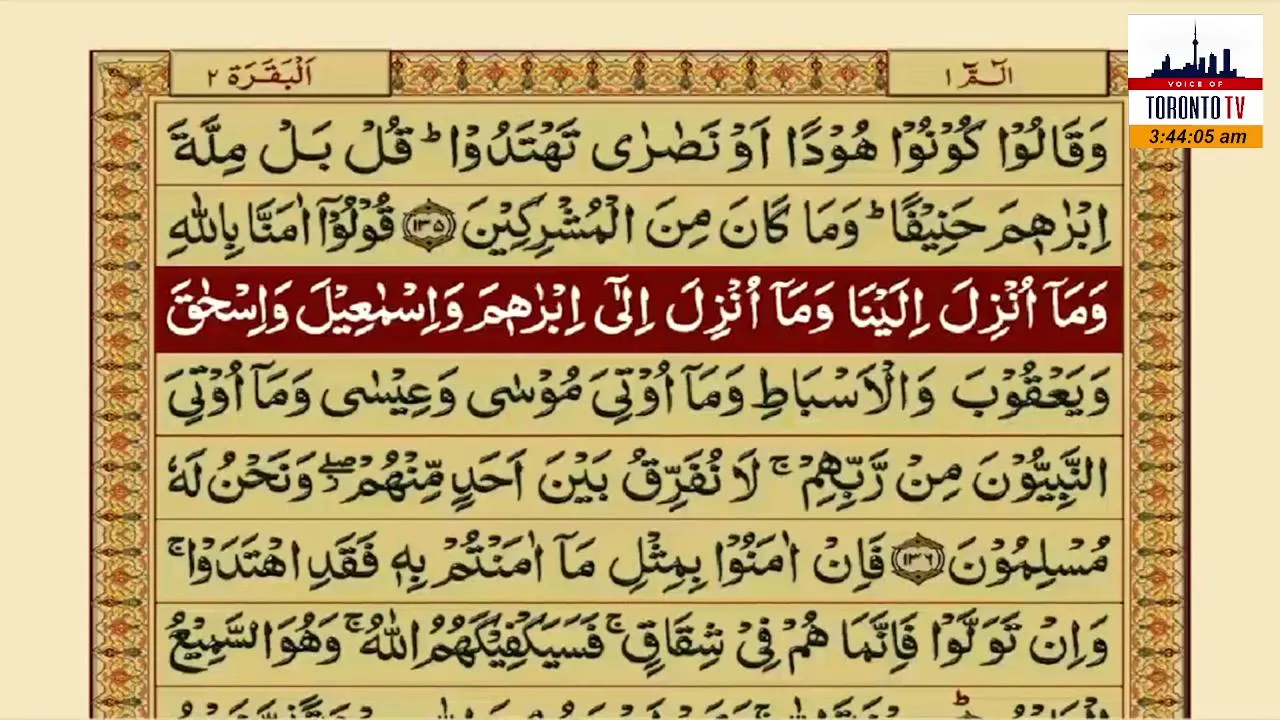 اَلْبَقَرَة ٢
الٓمّٓ ١
VOICE OF
TORONTO TV
3:44:05 am
وَقَالُوْا كُوْنُوْا هُوْدًا اَوْ نَصٰرٰى تَهْتَدُوْا ؕ قُلْ بَلْ مِلَّةَ
اِبْرٰهٖمَ حَنِيْفًا ؕ وَمَا كَانَ مِنَ الْمُشْرِكِيْنَ ۝١٣٥ قُوْلُوْۤا اٰمَنَّا بِاللّٰهِ
وَمَاۤ اُنْزِلَ اِلَيْنَا وَمَاۤ اُنْزِلَ اِلٰٓى اِبْرٰهٖمَ وَاِسْمٰعِيْلَ وَاِسْحٰقَ
وَيَعْقُوْبَ وَالْاَسْبَاطِ وَمَاۤ اُوْتِيَ مُوْسٰى وَعِيْسٰى وَمَاۤ اُوْتِيَ
النَّبِيُّوْنَ مِنْ رَّبِّهِمْ ۚ لَا نُفَرِّقُ بَيْنَ اَحَدٍ مِّنْهُمْ ۖ وَنَحْنُ لَهٗ
مُسْلِمُوْنَ ۝١٣٦ فَاِنْ اٰمَنُوْا بِمِثْلِ مَاۤ اٰمَنْتُمْ بِهٖ فَقَدِ اهْتَدَوْا ۚ
وَاِنْ تَوَلَّوْا فَاِنَّمَا هُمْ فِيْ شِقَاقٍ ۚ فَسَيَكْفِيْكَهُمُ اللّٰهُ ۚ وَهُوَ السَّمِيْعُ